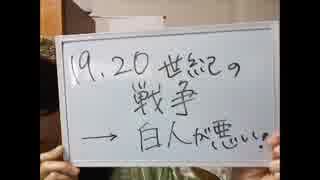 19.20世紀の
戦争
→ 白人が悪い!